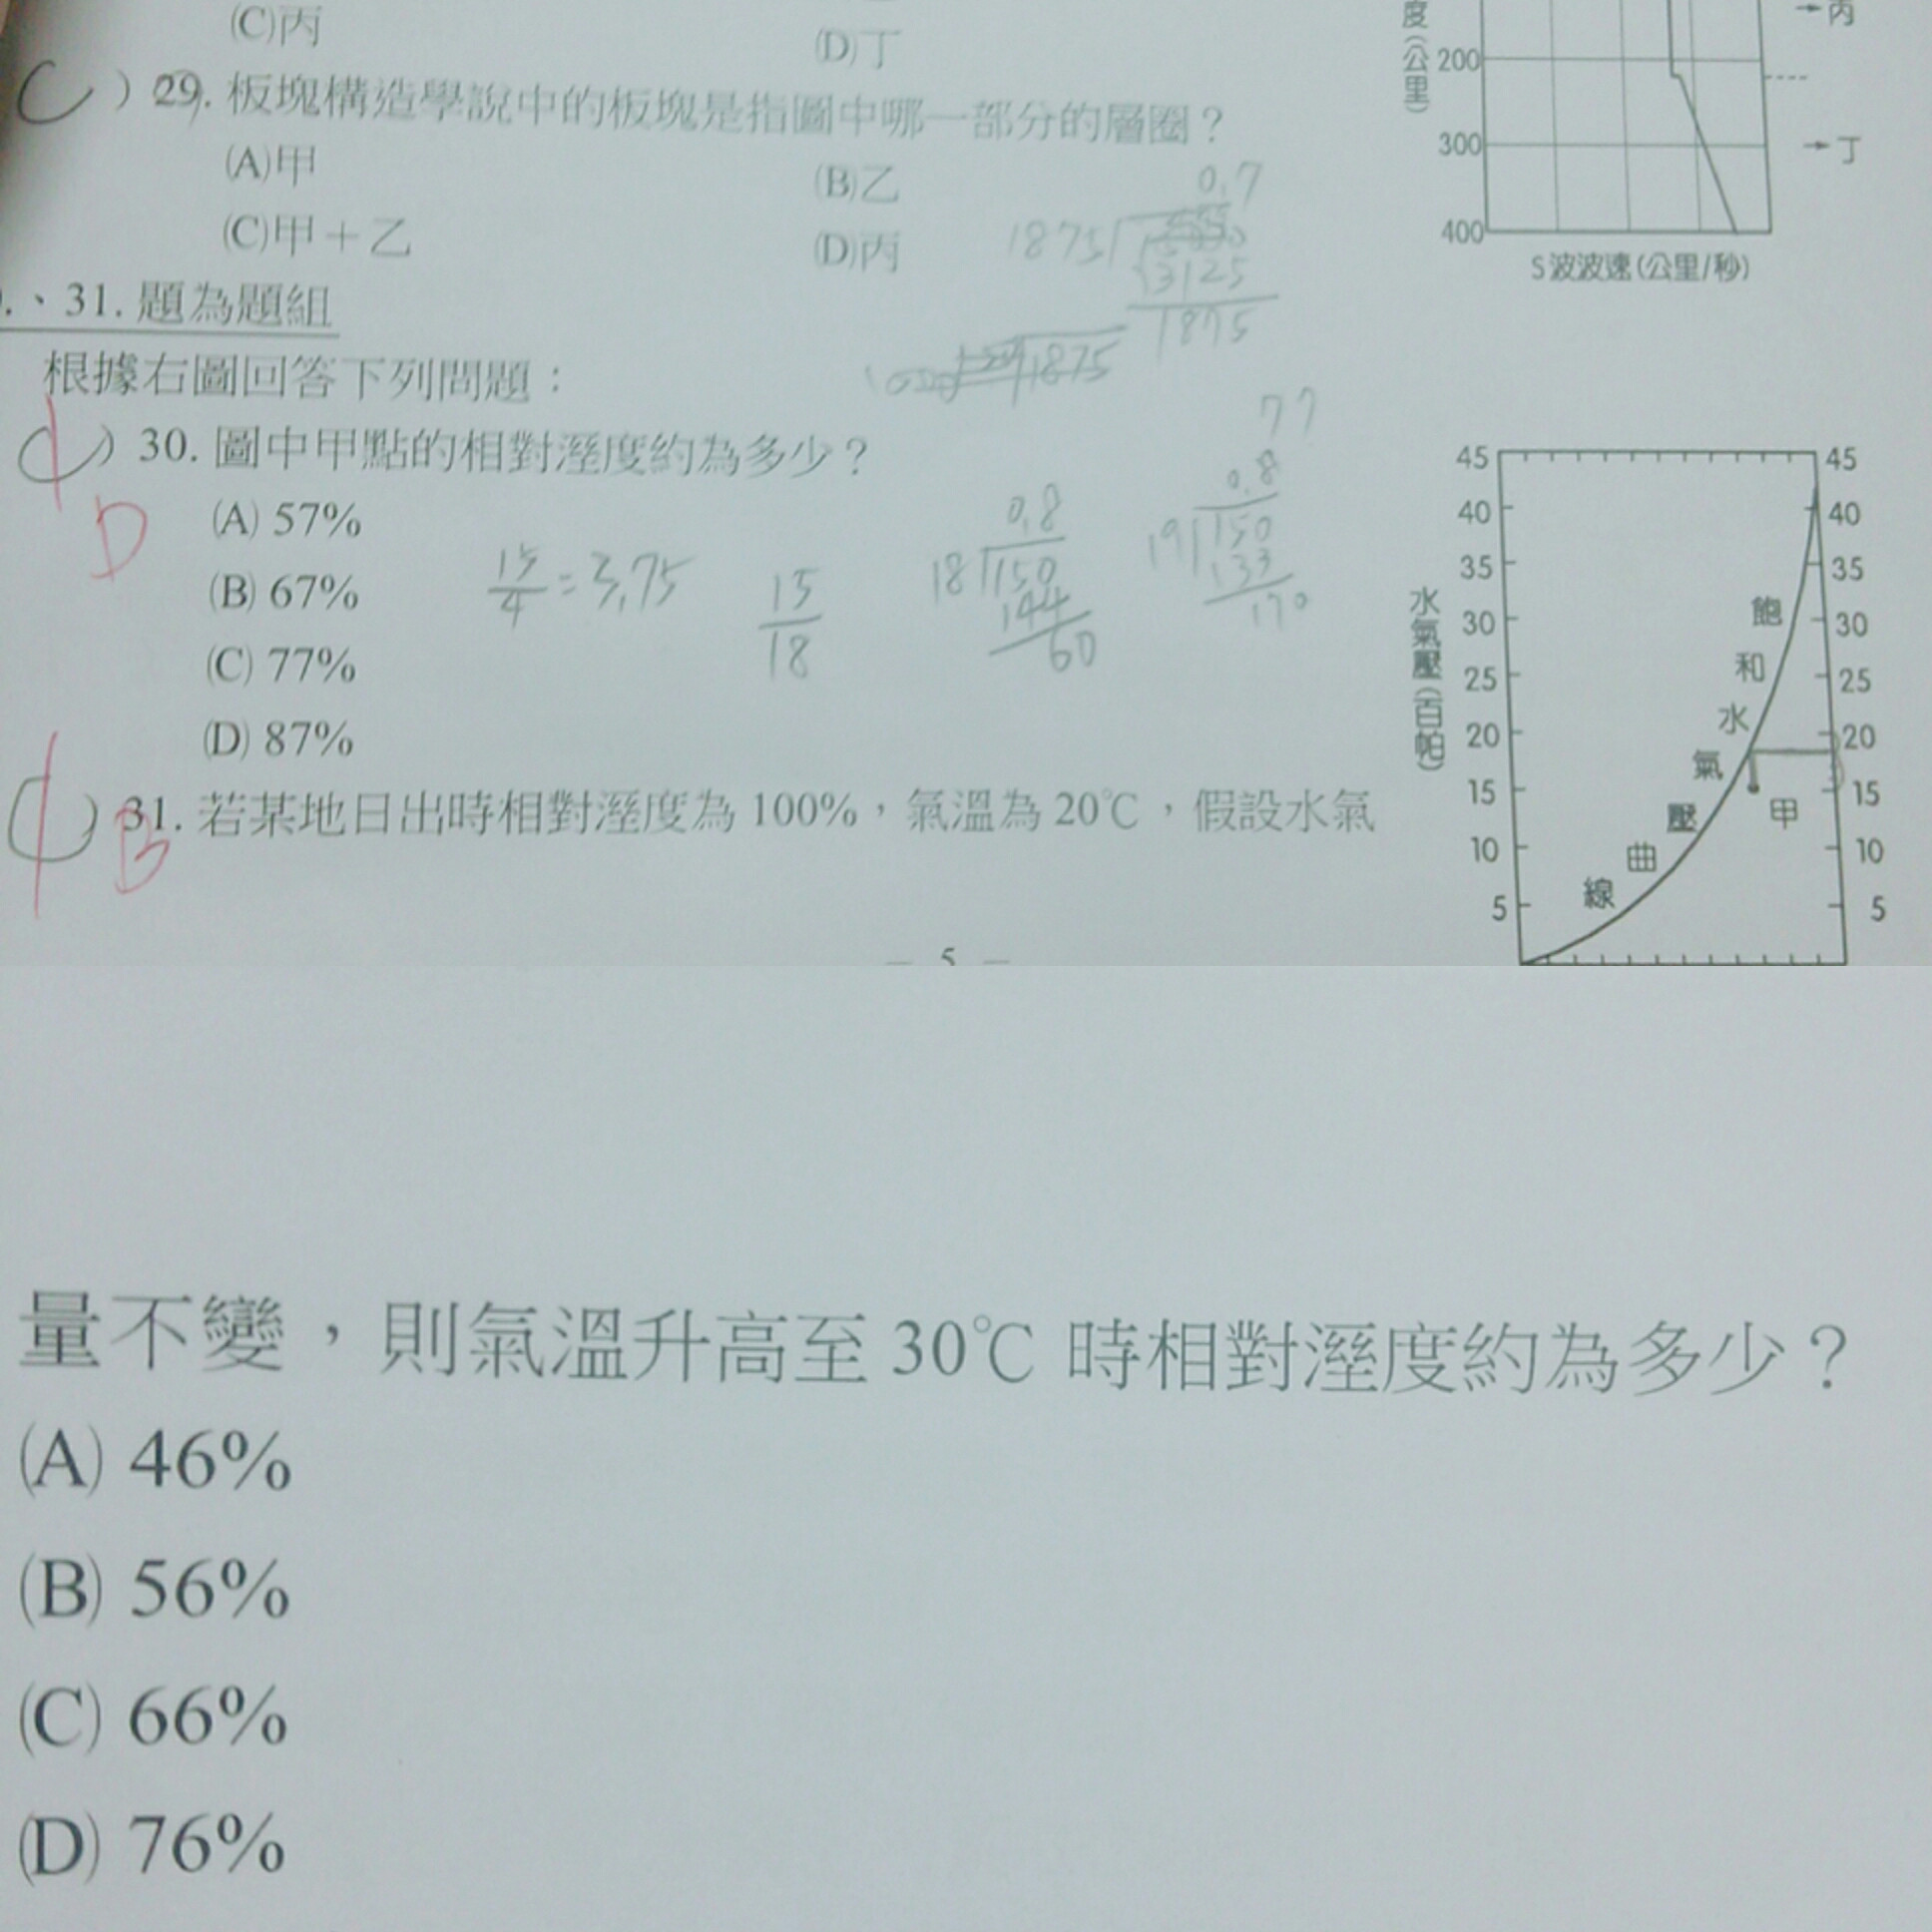 (C)丙
(D)丁
C ) 29. 板塊構造學說中的板塊是指圖中哪一部分的層圈？
(A)甲
(B)乙
(C)甲＋乙
(D)丙
度(公里)
200
300
400
丙
丁
S波波速(公里/秒)
0.7
1875
3125
1875
1875
、31. 題為題組
根據右圖回答下列問題：
) 30. 圖中甲點的相對溼度約為多少？
D
(A) 57%
(B) 67%
(C) 77%
(D) 87%
15/4 = 3.75
15/18
0.8
18 150
144
60
77
0.8
19 150
133
170
) 31. 若某地日出時相對溼度為 100%，氣溫為 20℃，假設水氣
B
水氣壓(百帕)
45 45
40 40
35 35
30 30
25 25
20 20
15 15
10 10
5 5
飽和水氣壓曲線
甲
— 5 —
量不變，則氣溫升高至 30℃ 時相對溼度約為多少？
(A) 46%
(B) 56%
(C) 66%
(D) 76%